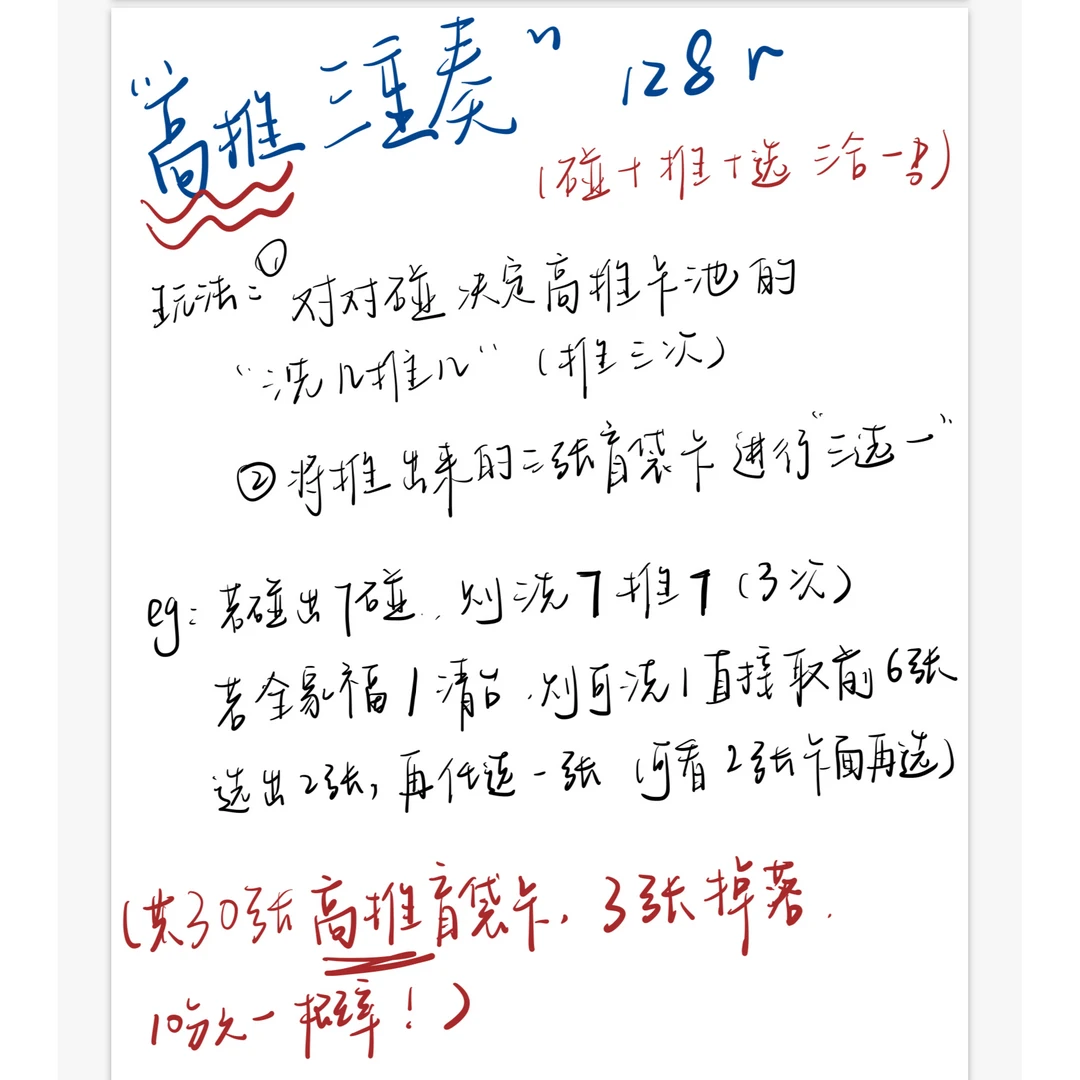 “高推三重奏” 128r
(碰+推+选 三合一书)
玩法:① 对对碰决定高推卡池的
“洗几推几”(推三次)
②将推出来的三张盲袋卡进行“三选一”
eg:若碰出7碰,则洗7推7(3次)
若全家福/清台,则可洗1直接取前6张
选出2张,再任选一张(可看2张卡面再选)
(共30张高推盲袋卡,3张掉落.
10分之一概率!)